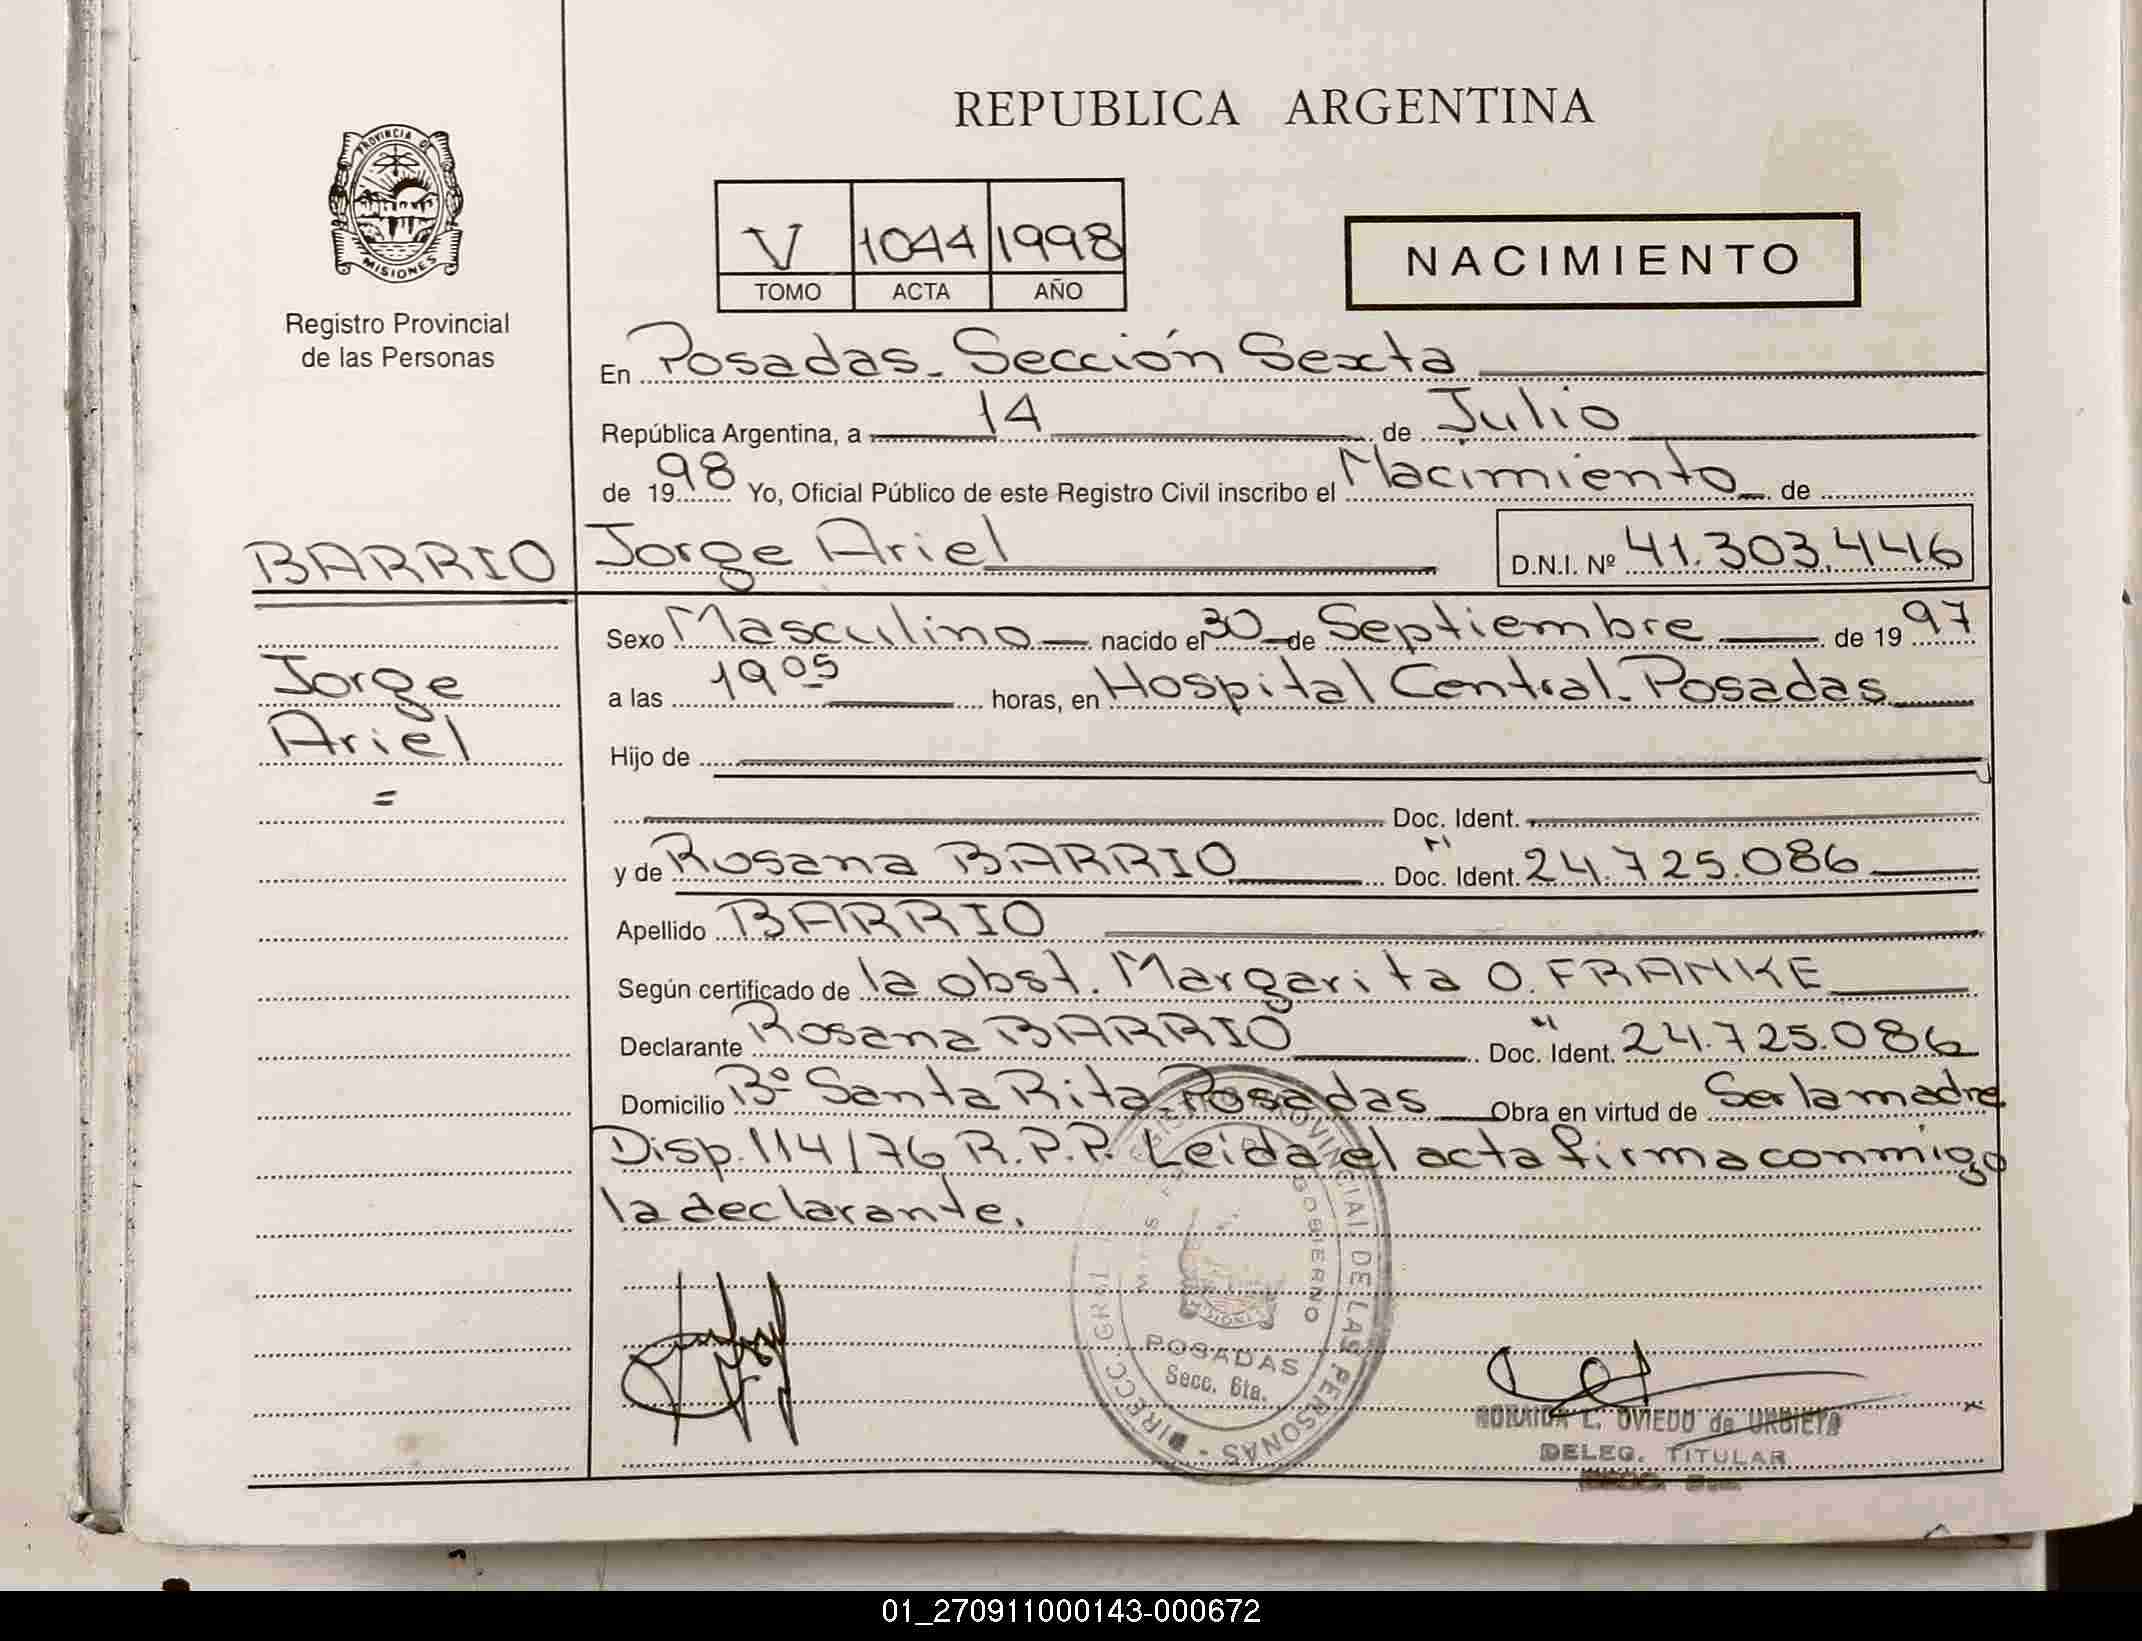 REPUBLICA ARGENTINA
PROVINCIA DE
MISIONES
Registro Provincial
de las Personas
V 1044 1998
TOMO ACTA AÑO
NACIMIENTO
En Posadas - Sección Sexta
República Argentina, a 14 de Julio
de 1998 Yo, Oficial Público de este Registro Civil inscribo el Nacimiento de
BARRIO Jorge Ariel D.N.I. Nº 41.303.446
Sexo Masculino nacido el 30 de Septiembre de 1997
Jorge
a las 19 05 horas, en Hospital Central - Posadas
Ariel
Hijo de
=
Doc. Ident.
y de Rosana BARRIO Doc. Ident. 24.725.086
Apellido BARRIO
Según certificado de la obst. Margarita O. FRANKE
Declarante Rosana BARRIO Doc. Ident. 24.725.086
Domicilio Bº Santa Rita - Posadas Obra en virtud de Ser la madre
Disp. 114/76 R.P.P. Leida el acta firma conmigo
la declarante.
PROVINCIAL DE LAS PERSONAS
GOBIERNO
MISIONES
POSADAS
Secc. 6ta.
L. OVIEDO de URBIETA
DELEG. TITULAR
01_270911000143-000672